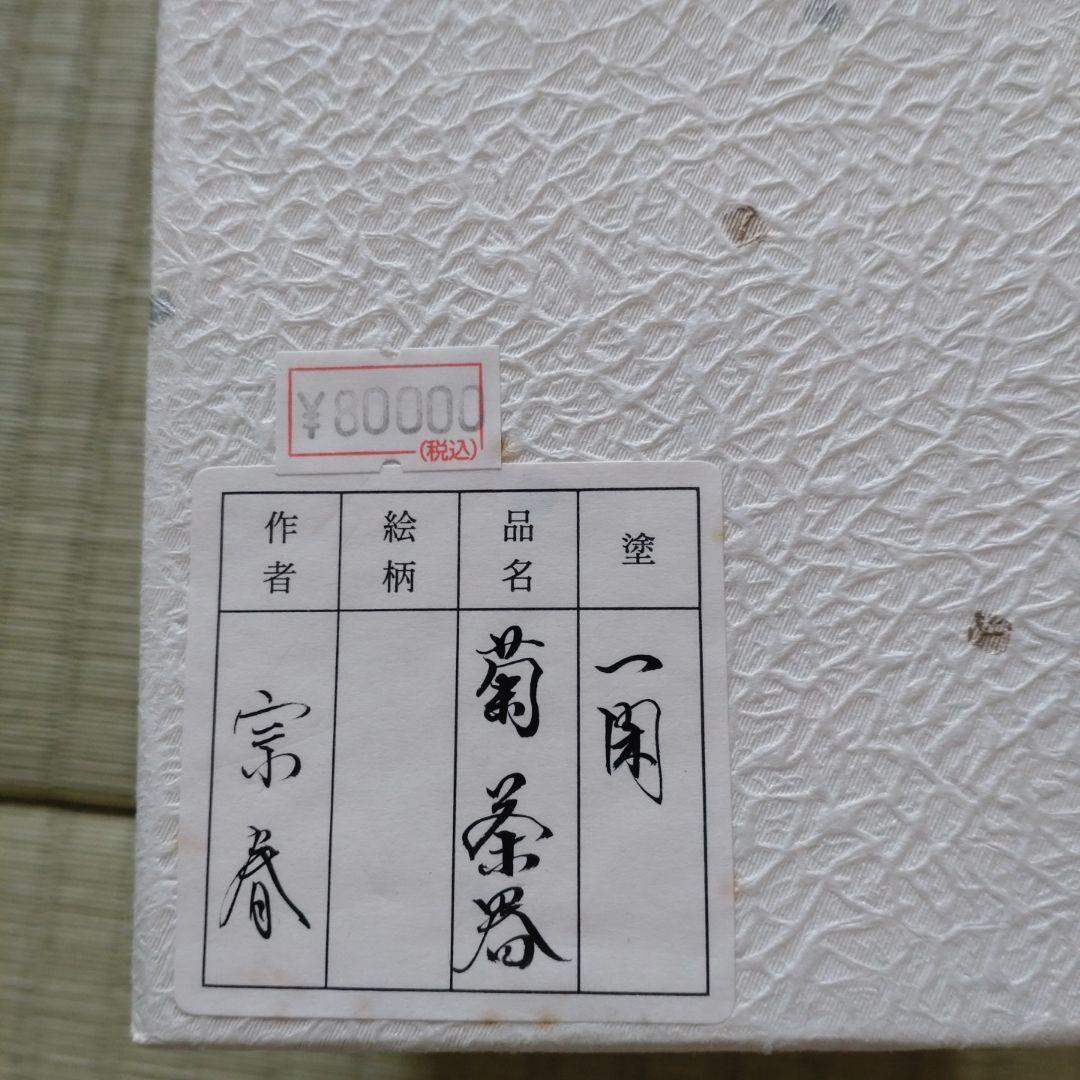 ¥80000
(税込)
塗
一閑
品名
菊茶器
絵柄
作者
宗春